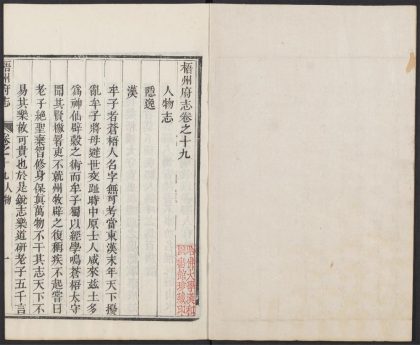 梧州府志卷之十九
人物志
隱逸
漢
牟子者蒼梧人名字無可考當東漢末年天下擾
亂牟子將母避世交趾時中原士人咸來茲土多
為神仙辟穀之術而牟子獨以經學鳴蒼梧太守
聞其賢檄署吏不就州牧辟之復稱疾不起嘗曰
老子絕聖棄智修身保真萬物不干其志天下不
易其樂故可貴也於是銳志樂道研老子五千言
梧州府志
卷之十九人物
一
哈佛大學漢和
圖書館珍藏印